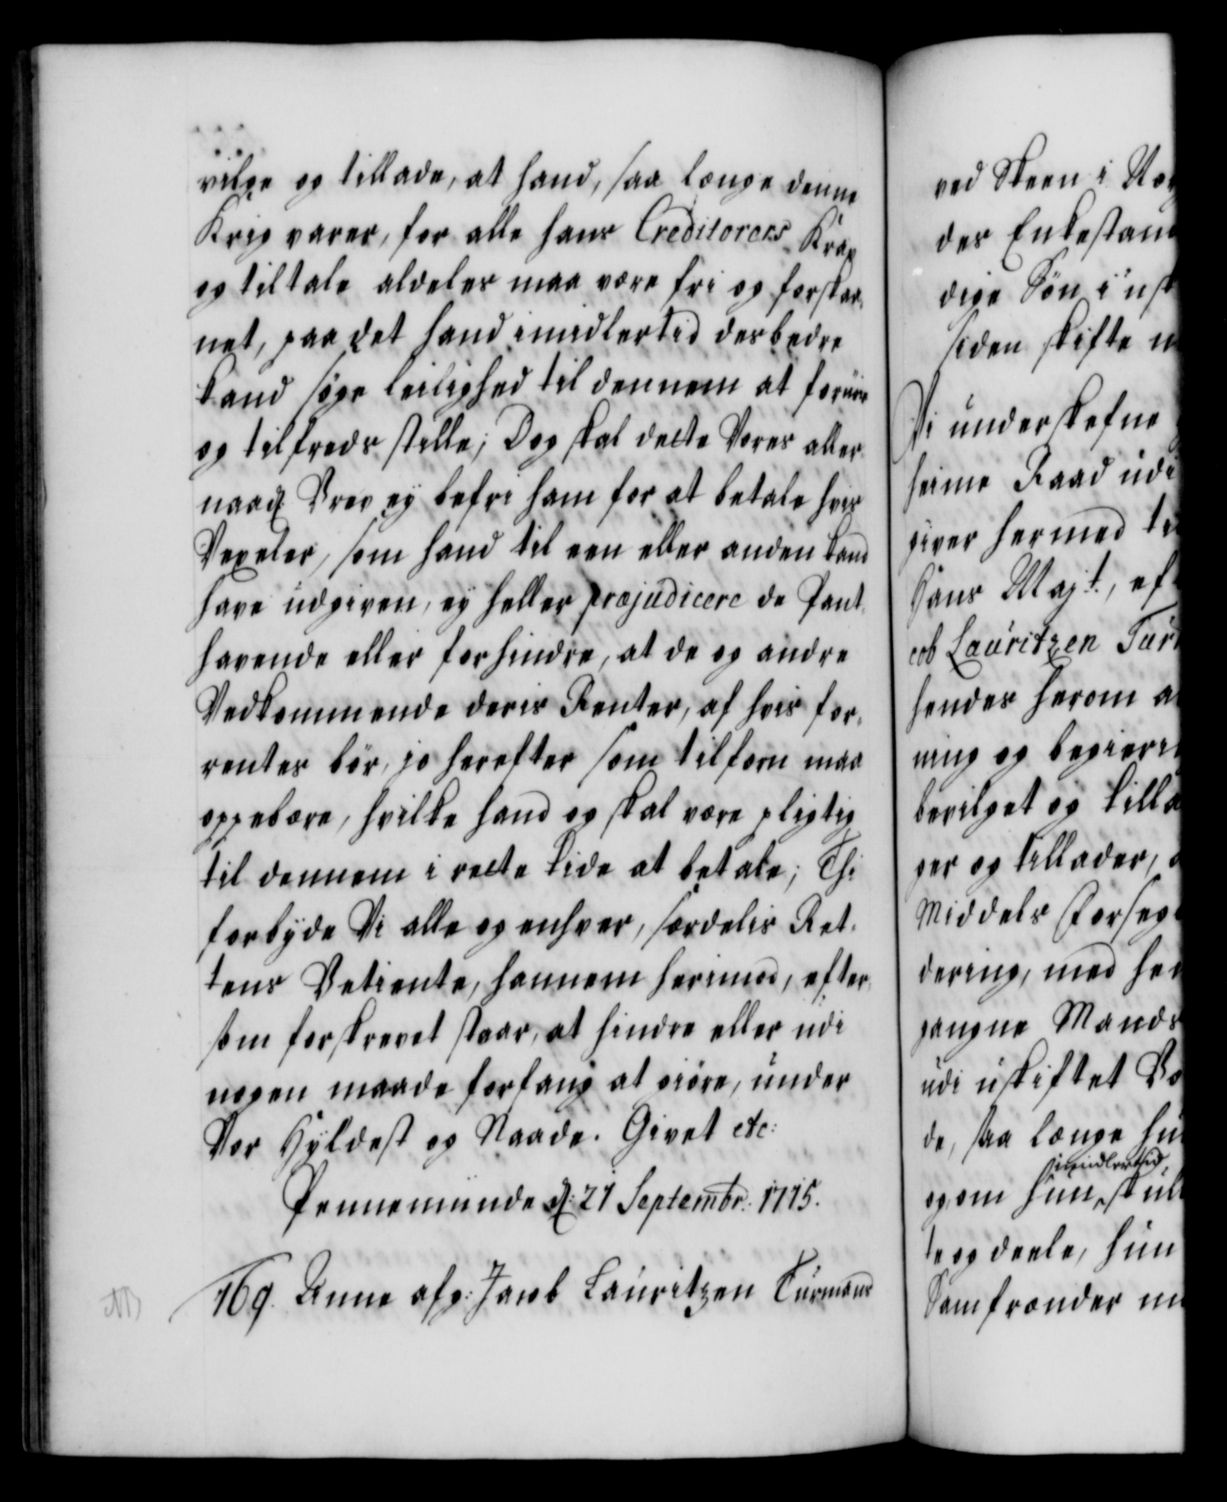 vilge og tillade, at hand, saa længe denne
Krig varer, for alle hans Creditorers Krav
og tiltale aldeles maa være fri og forskaa-
net, paa det hand imidlertid des bedre
kand søge leilighed til dennem at fornøie
og tilfredsstille; Dog skal dette Vores aller-
naadt Brev ey befri ham for at betale hvis
Vexeler, som hand til een eller anden kand
have udgiven, ey heller præjudicere de Pant-
havende eller forhindre, at de og andre
Vedkommende deris Renter, af hvis for-
rentes bør, jo herefter som tilforn maa
oppebære, hvilke hand og skal være pligtig
til dennem i rette tide at betale; Thi
forbyde Vi alle og enhver, særdelis Ret-
tens Betiente, hannem herimod, efter-
som forskrevet staar, at hindre eller udi
nogen maade forfang at giøre, under
Vor Hyldest og Naade. Givet etc:
Pennemünde d: 21 Septembr: 1715.
169. Anne afg: Jacob Lauritzen Turmans
ved Skeen i Nor
des Enkestand
dige Søn i usk
siden skifte m
Vi underskefne
heime Raad udi
giver hermed ti
Hans Majt, ef
cob Lauritzen Turm
hendes herom a
ning og begiering
bevilget og tilla
ger og tillader, a
Middels Forsegl
dering, med hen
gangne Mands
udi uskiftet Bo
de, saa længe hun
imidlertid
og om hun skul
te og deele, hun
Samfrænder m